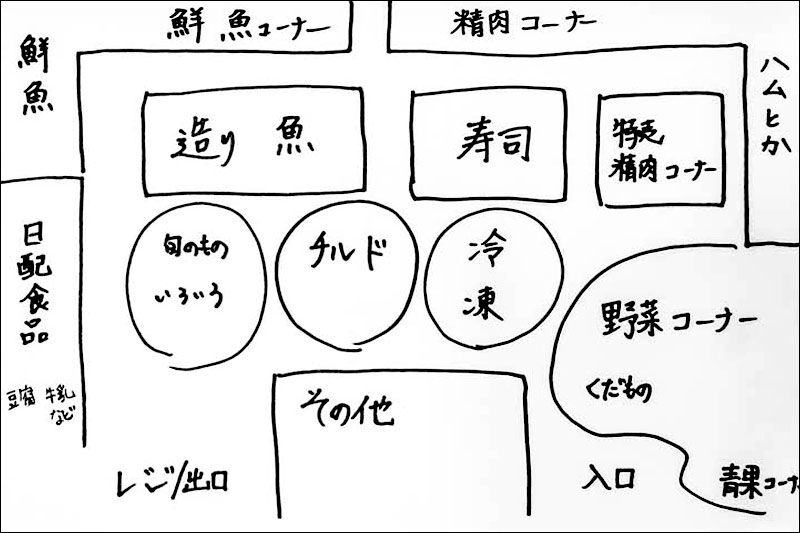 鮮魚コーナー
精肉コーナー
鮮魚
ハムとか
造り 魚
寿司
特売
精肉コーナー
日配食品
旬のもの
いろいろ
チルド
冷凍
野菜コーナー
くだもの
豆腐 牛乳
など
その他
レジ/出口
入口
青果コーナー